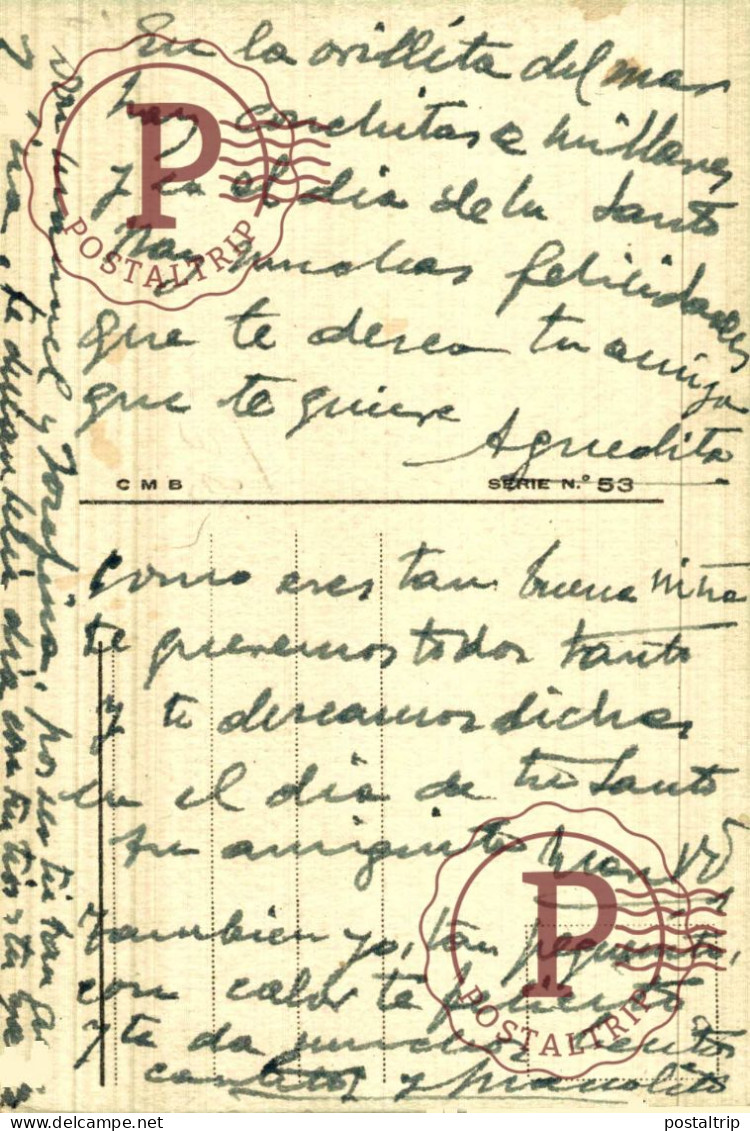 En la orillita del mar
hay conchitas a millares
y en el dia de tu Santo
hay muchas felicidades
que te desea tu amiga
que te quiere
Aguedita
C M B
SERIE N.º 53
Como eres tan buena niña
te queremos todos tanto
y te deseamos dichas
en el dia de tu Santo
tu amiguito
Tambien yo, tan pequeñito,
con calor te felicito
y te da muchos besitos
y
Manuel y Josefina, por ser tu
te dia con tus tios y tu
P
POSTALTRIP
P
POSTALTRIP
delcampe.net
postaltrip